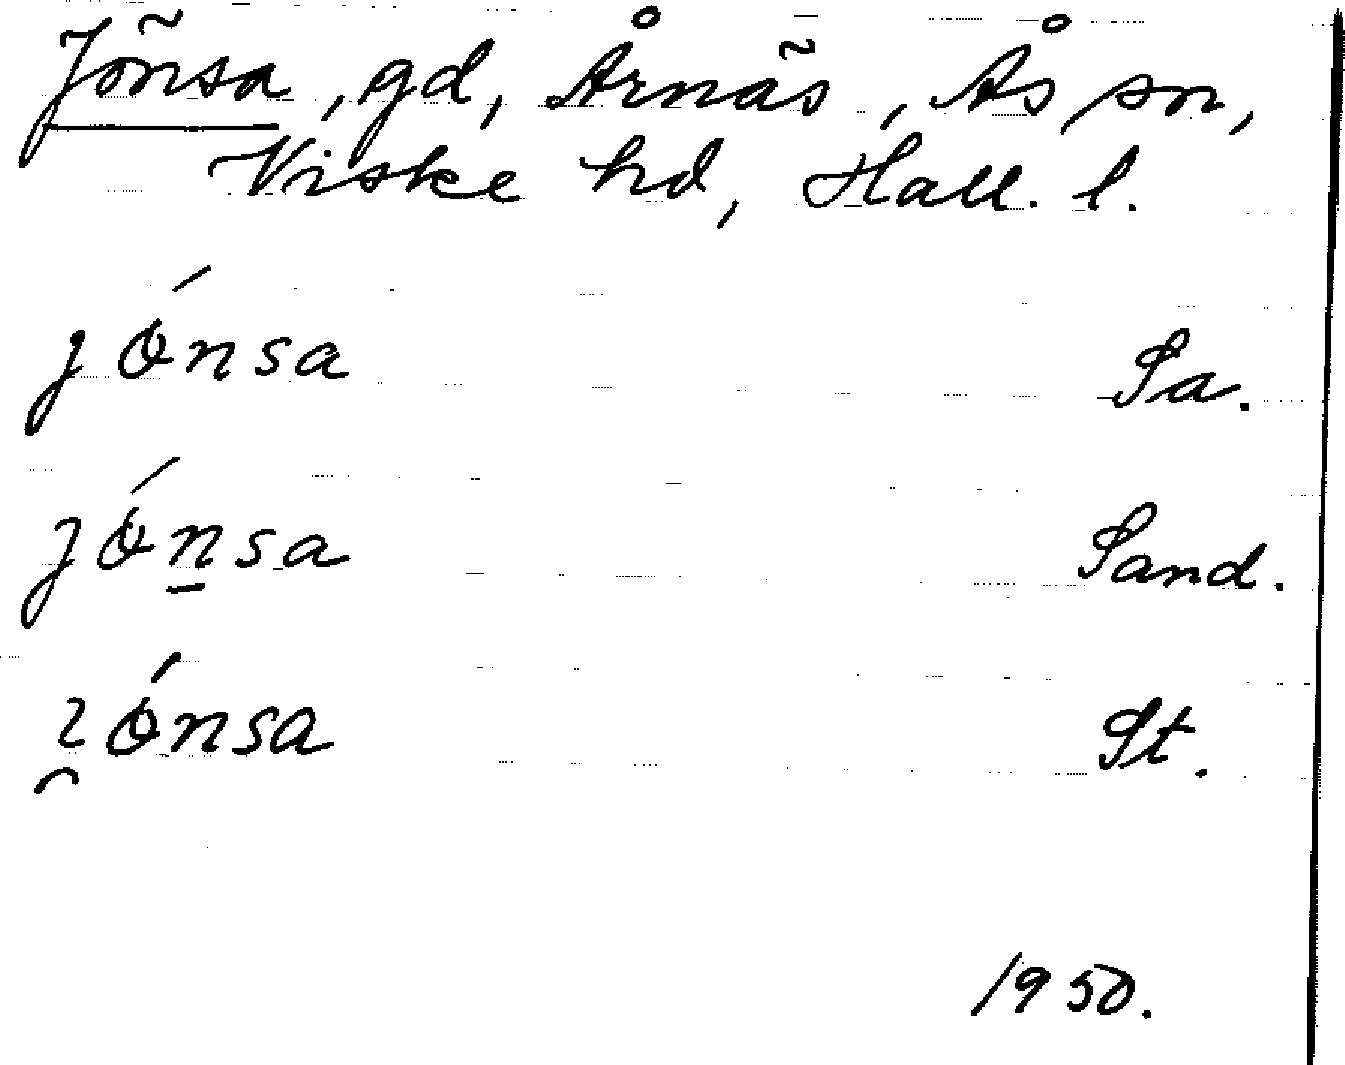 Jönsa, gd, Årnäs, Ås sn,
Viske hd, Hall. l.
jónsa Sa.
jónsa Sand.
ɩ̯ónsa St.
1950.